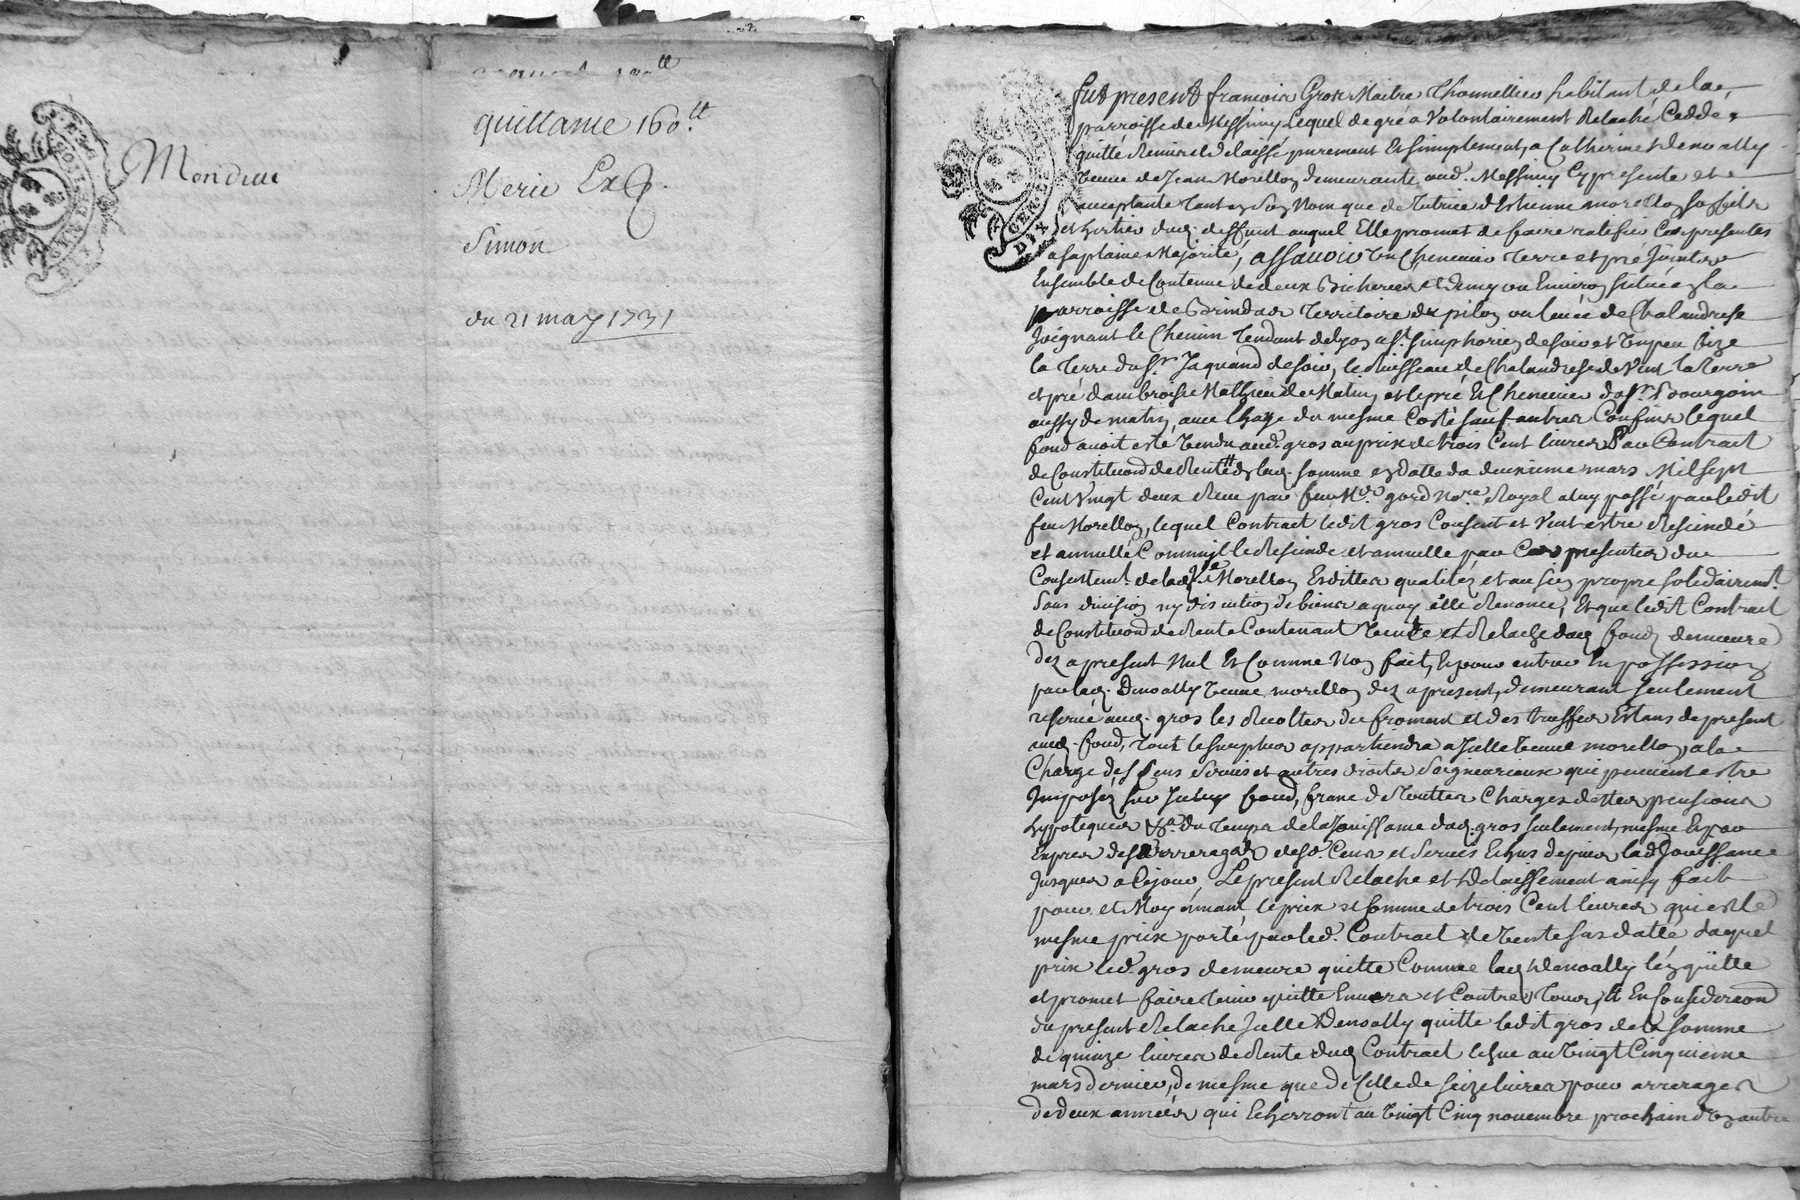 Mondue
quittance 160.tt
Merie Ex
Simon
du 21 may 1731
fut present françois Gros Maitre Thonnellier habitant de la
parroisse de Messimy Lequel de gré a Volontairement Relaché Ceddé
quitté Remis et delaissé purement Et simplement, a Catherine Denoally
Veuve de Jean Morellon demeurante aud. Messimy Cy presente et
acceptante tant en son Nom que de tutrice d'Estienne morellon son fils
et hertier dud. deffunt auquel Elle promet de faire ratifier Ces presentes
a sa plaine Majorité, assavoir Un Chenevier Terre et pré Joints
Ensemble de Contenue de deux Bicherees et demy ou Environ situées en la
parroisse de Brindas Territoire du pilon ou levée de Chalandrese
Joignant le Chemin tendant de lyon a St. simphorien de soir et Un peu bize
la terre du Sr. Jaquand de soir, le Ruisseau de Chalandrese de Vent la terre
et pré d'ambroise Mathieu de Matin, et le pré Et Chenevier du Sr. Bourgoin
aussy de matin, avec l'haye du mesme Costé sauf autres Confins lequel
fond avoit esté Vendu aud. gros au prix de trois Cent livres Par Contract
de Constitution de Rente de lad. somme en datte du deuxieme mars Mil sept
Cent Vingt deux Receu par feu Me. gord Nore. Royal a luy passé par ledit
feu Morellon, lequel Contract ledit gros Consent et Veut estre Rescindé
et annullé Comme il le Rescinde et annulle par Ces presentes du
Consentemt. de lad. Ve. Morellon Esdittes qualitez et au sien propre solidairemt.
sans division ny discution de biens a quoy elle Renonce, Et que ledit Contract
de Constitution de Rente Contenant Vente et Relache dud. fond demeure
dez a present Nul Et Comme Non fait, Et pour entrer En possession
par lad. Denoally Veuve morellon dez a present, demeurant seulement
reservé aud. gros les Recoltes du froment et des truffes Estans de present
aud. fond, tout le surplus appartiendra a Jcelle Veuve morellon, a la
Charge des Cens Servis et autres droits Seigneuriaux qui peuvent estre
Jmposez sur Jceluy fond, franc de Touttes Charges dettes pensions
hypoteques &a. du temps de la Jouissance dud. gros seulement, mesme Expar
Expres des arrerages desd. Cens et Servis Echus depuis lad. Jouissance
Jusques a Cejour, Le present Relache et Delaissement ainsy fait
pour et Moyennant, le prix et somme de trois Cent livres qui est le
mesme prix porté par led. Contract de Vente sus datté duquel
prix led. gros demeure quitte Comme lad. Denoally l'en quitte
et promet faire tenir quitte Envers et Contre Tous, Et En Consideration
du present Relache Jcelle Denoally quitte ledit gros de la somme
de quinze livres de Rente dud. Contract Echue au Vingt Cinquieme
mars dernier, de mesme que de Celle de seize livres pour arrerages
de deux années qui Echerront au Vingt Cinq novembre prochain d'un autre